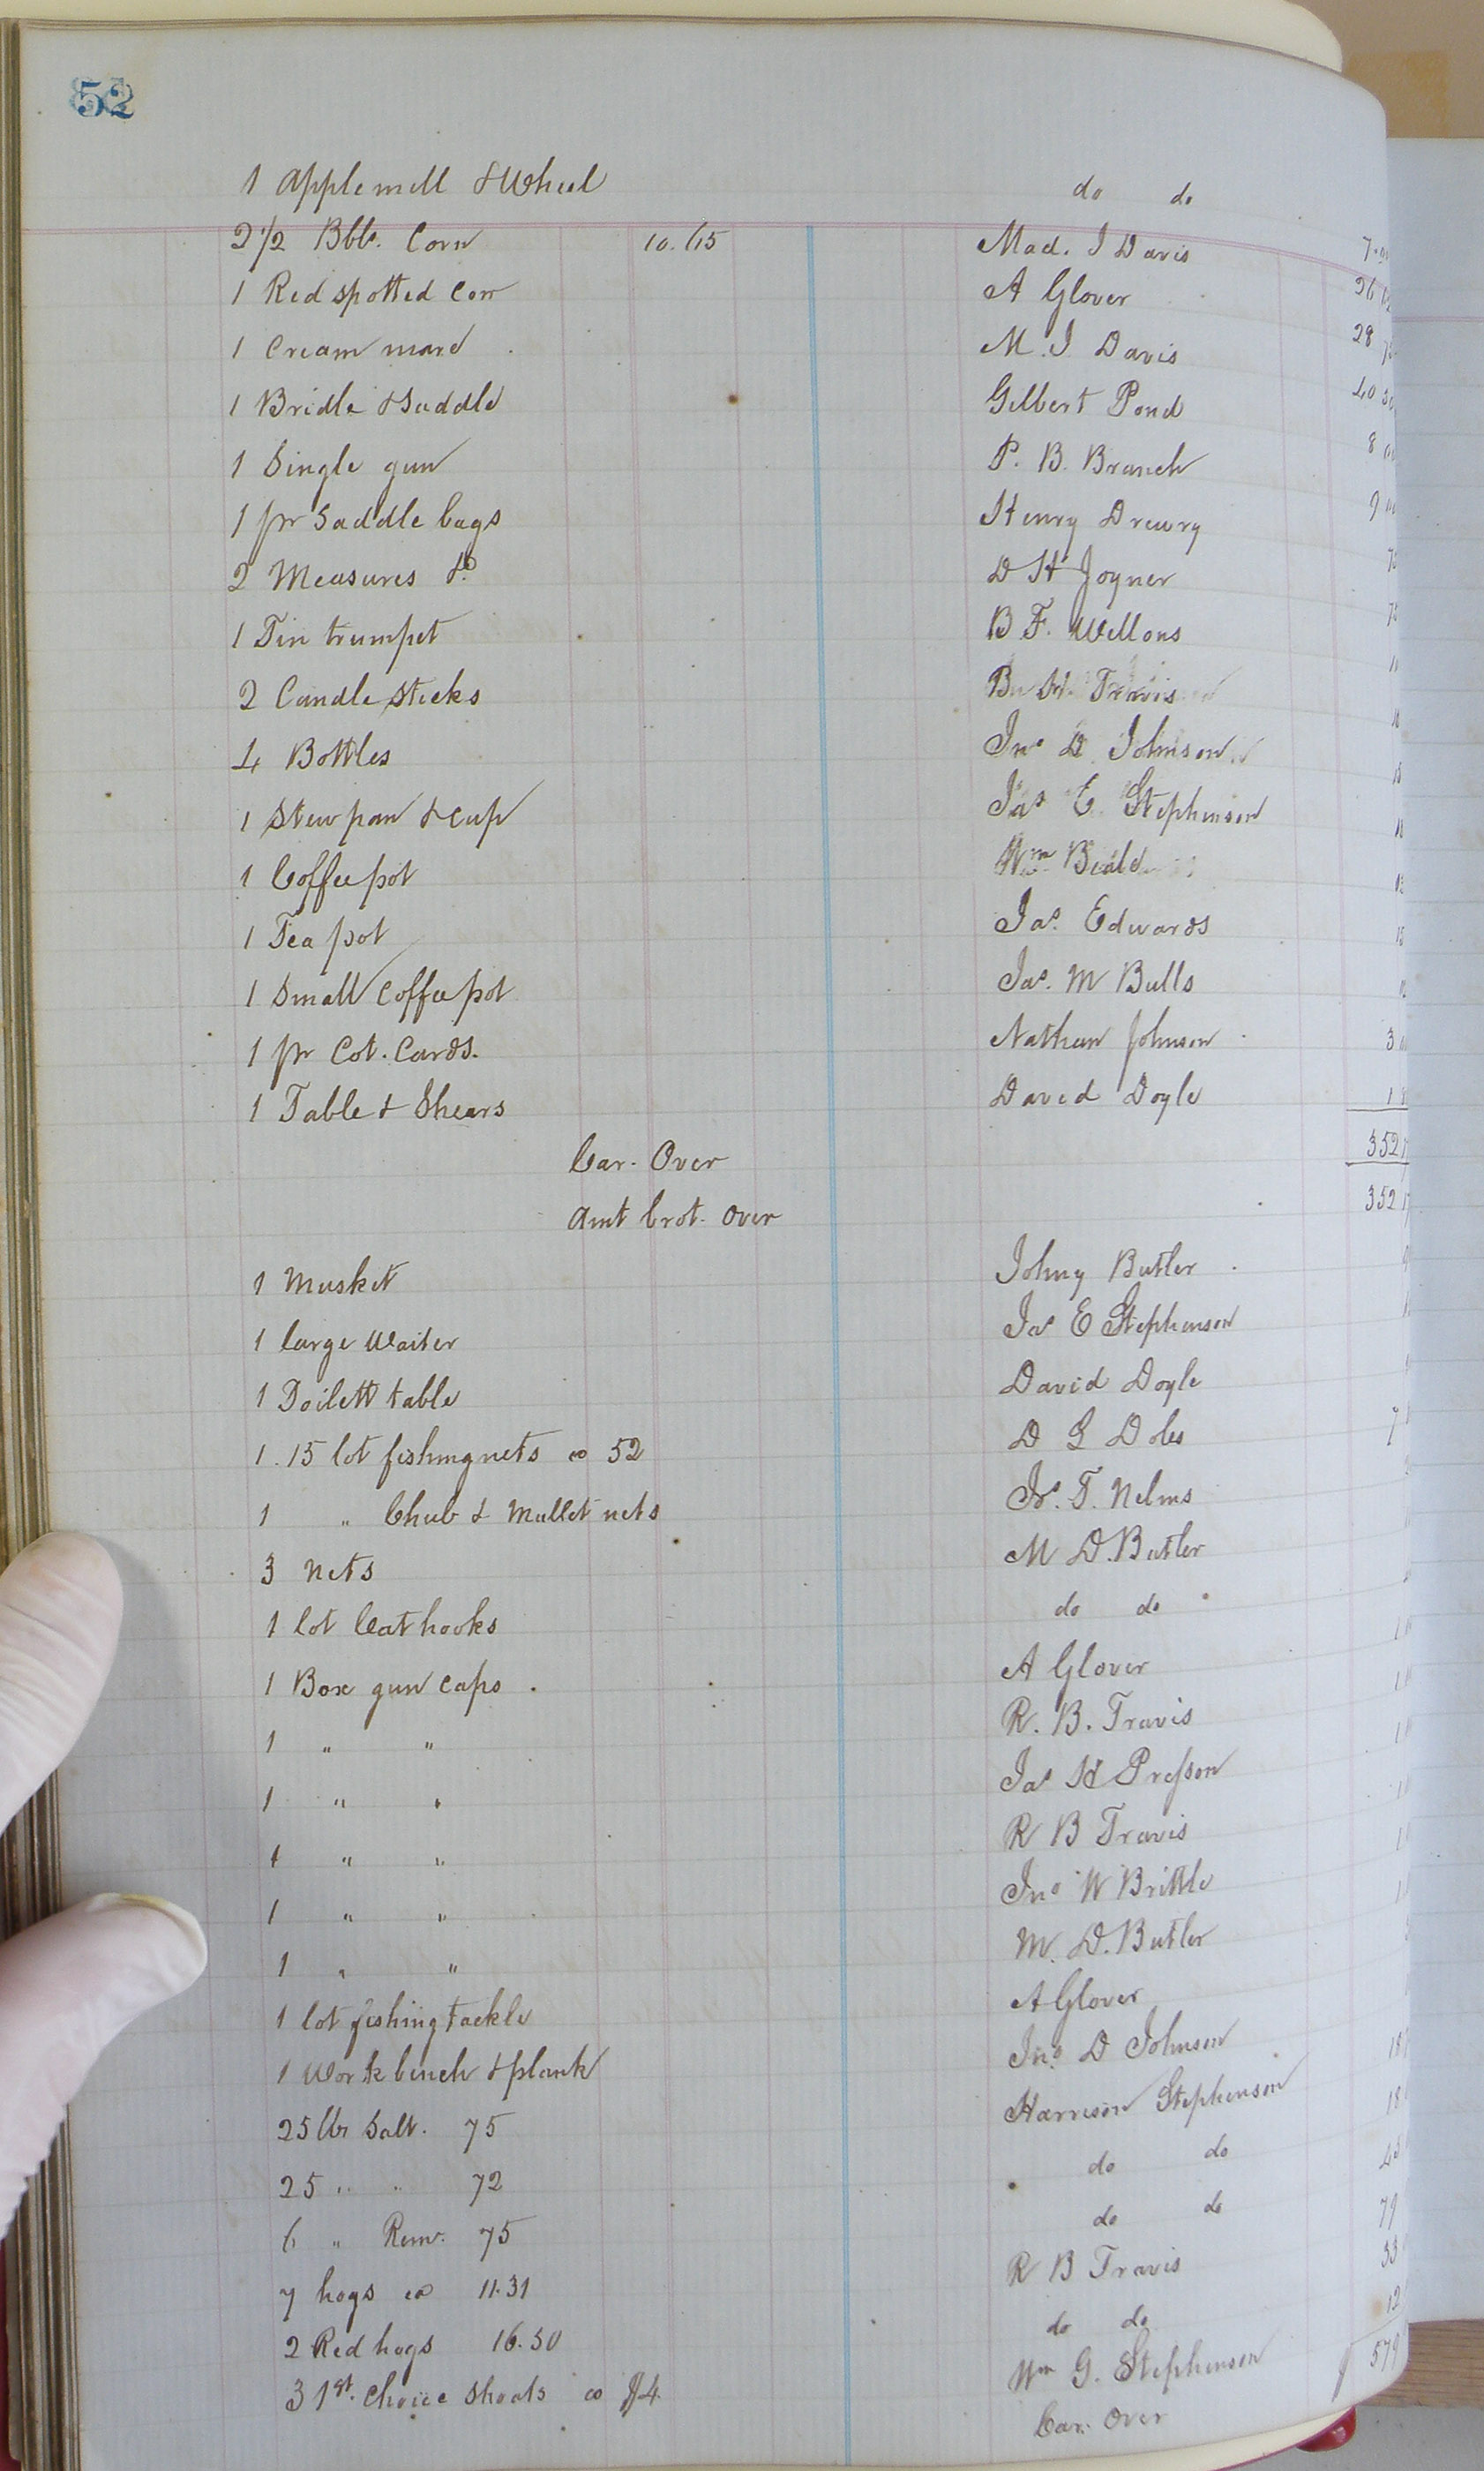 52
1 Applemill & Wheel do do
2 1/2 Bbls. Corn 10.15 Mad. J Davis 7.
1 Red spotted Cow A Glover 26
1 Cream mare M. J Davis 28
1 Bridle & Saddle Gilbert Pond 40 50
1 Single gun P. B. Branch 8
1 pr Saddle bags Henry Drewry 9
2 Measures &c D H Joyner
1 Tin trumpet B F. Wellons
2 Candle sticks Travis
4 Bottles Jno D Johnson
1 Stew pan & Cup Jas E. Stephenson
1 Coffee pot Wm Beald
1 Tea pot Jas. Edwards 15
1 Small Coffee pot Jas. M Bulls
1 pr Cot. Cards. Nathan Johnson 3
1 Table & Shears David Doyle 1
Car. Over 352
Amt brot. over 352
1 Musket Johny Butler
1 large Waiter Jas E Stephenson
1 Toilett table David Doyle 
1 . 15 lot fishing nets @ 52 D G Doles 7
1 " Chub & Mullet nets T. Nelms
3 nets M D. Butler
1 lot Cat hooks do do
1 Box gun caps . A Glover
1 " " R. B. Travis
1 " " Jas H Presson
1 " " R B Travis
1 " " Jno W Brittle
1 " " M. D. Butler
1 lot fishing tackle A Glover
1 Work bench & plank Jno D Johnson
25 lbs Salt. 75 Harrison Stephenson 18
25 " " 72 do do 18
6 " Rem. 75 do do
7 hogs @ 11.31 R B Travis 79
2 Red hogs 16.50 do do 33
3 1st. choice Shoats @ $4 Wm G. Stephenson 12
Car. Over 579